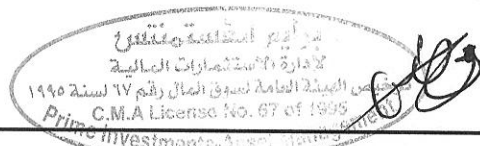 برايم انفستمنتس
لادارة الاستثمارات المالية
ترخيص الهيئة العامة لسوق المال رقم ٦٧ لسنة ١٩٩٥
C.M.A License No. 67 of 1995
Prime Investments Asset Management